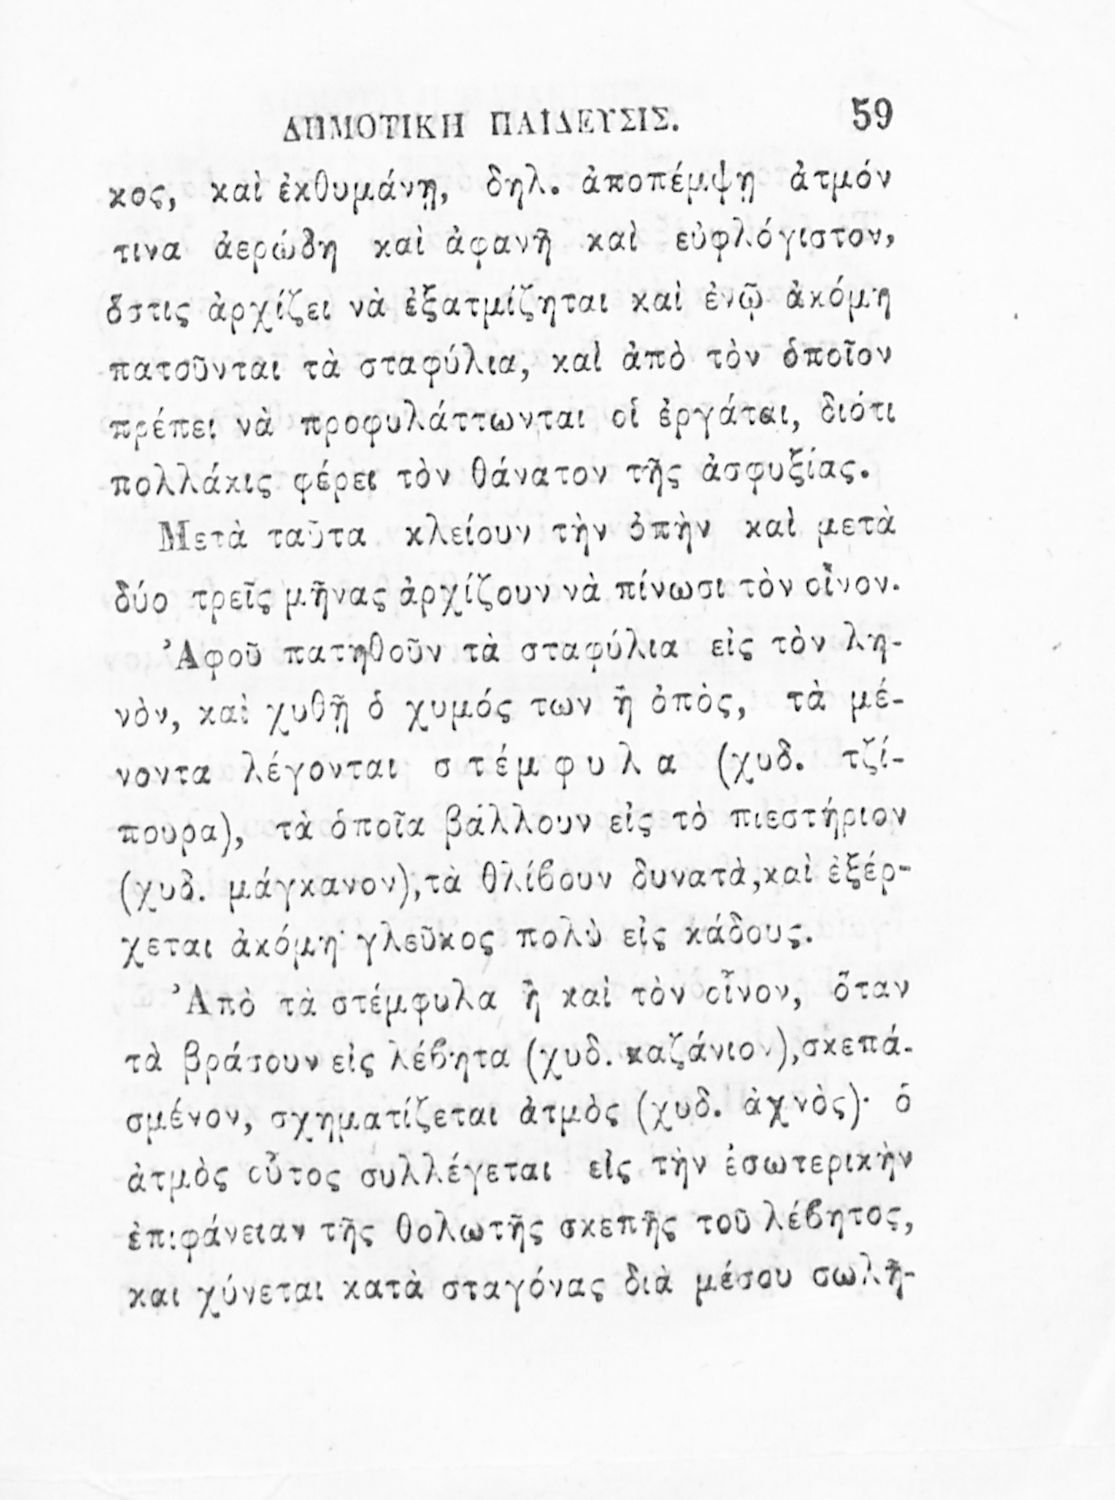 ΔΗΜΟΤΙΚΗ ΠΑΙΔΕΥΣΙΣ. 59
κος, καὶ ἐκθυμάνῃ, δηλ. ἀποπέμψῃ ἀτμόν
τινα ἀερώδη καὶ ἀφανῆ καὶ εὐφλόγιστον,
ὅστις ἀρχίζει νὰ ἐξατμίζηται καὶ ἐνῷ ἀκόμη
πατοῦνται τὰ σταφύλια, καὶ ἀπὸ τὸν ὁποῖον
πρέπει νὰ προφυλάττωνται οἱ ἐργάται, διότι
πολλάκις φέρει τὸν θάνατον τῆς ἀσφυξίας.
Μετὰ ταῦτα κλείουν τὴν ὀπὴν καὶ μετὰ
δύο τρεῖς μῆνας ἀρχίζουν νὰ πίνωσι τὸν οἶνον.
Ἀφοῦ πατηθοῦν τὰ σταφύλια εἰς τὸν λη-
νὸν, καὶ χυθῇ ὁ χυμός των ἢ ὀπὸς, τὰ μέ-
νοντα λέγονται στέμφυλα (χυδ. τζί-
πουρα), τὰ ὁποῖα βάλλουν εἰς τὸ πιεστήριον
(χυδ. μάγκανον),τὰ θλίβουν δυνατὰ,καὶ ἐξέρ-
χεται ἀκόμη γλεῦκος πολὺ εἰς κάδους.
Ἀπὸ τὰ στέμφυλα ἢ καὶ τὸν οἶνον, ὅταν
τὰ βράσουν εἰς λέβητα (χυδ. καζάνιον),σκεπά-
σμένον, σχηματίζεται ἀτμὸς (χυδ. ἀχνὸς)· ὁ
ἀτμὸς οὗτος συλλέγεται εἰς τὴν ἐσωτερικὴν
ἐπιφάνειαν τῆς θολωτῆς σκεπῆς τοῦ λέβητος,
και χύνεται κατὰ σταγόνας διὰ μέσου σωλῆ-